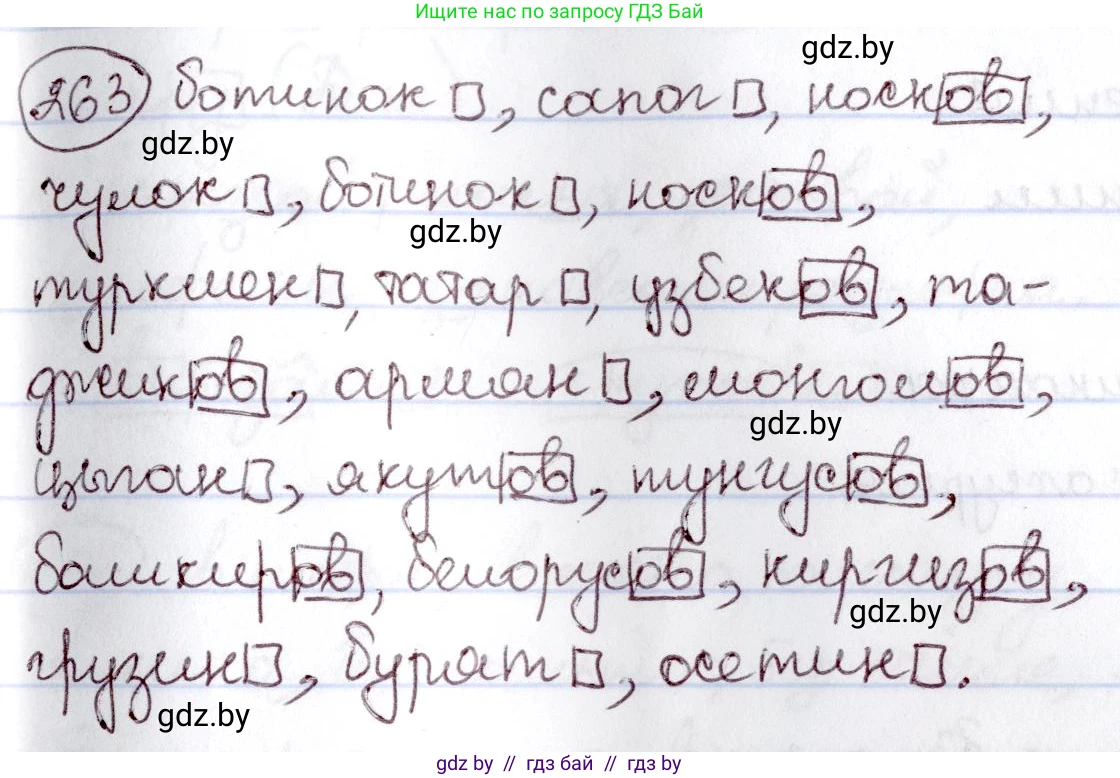 Ищите нас по запросу ГДЗ Бай
gdz.by
263 ботинок, сапог, носков,
gdz.by
чулок, ботинок, носков,
gdz.by
туркмен, татар, узбеков, та-
джиков, армян, монголов,
gdz.by
цыган, якутов, тунгусов,
башкиров, белорусов, киргизов,
gdz.by
грузин, бурят, осетин.
gdz.by
gdz.by // гдз бай // гдз by